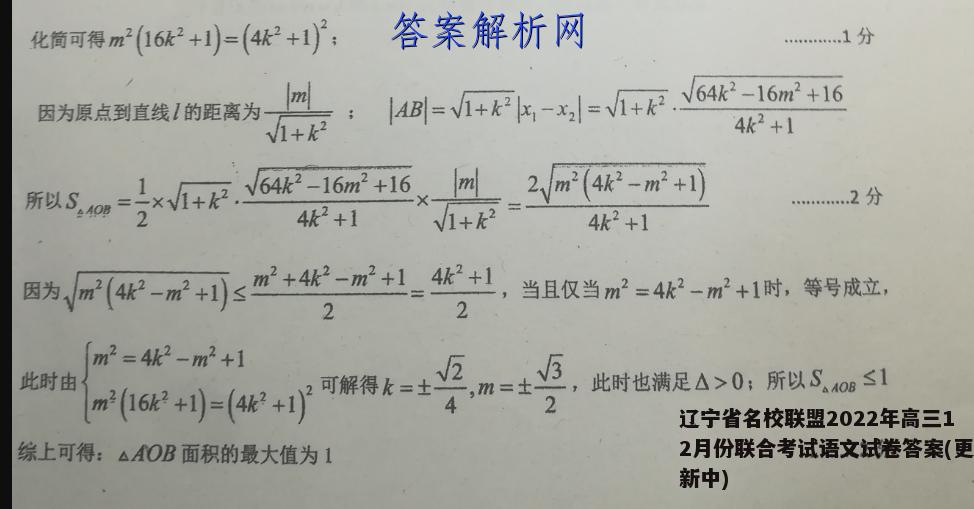 答案解析网
化简可得 m²(16k²+1)=(4k²+1)²； …………1 分
因为原点到直线 l 的距离为 |m|/√(1+k²)； |AB|=√(1+k²)|x₁−x₂|=√(1+k²)·√(64k²−16m²+16)/(4k²+1)
所以 S△AOB=1/2×√(1+k²)·√(64k²−16m²+16)/(4k²+1)×|m|/√(1+k²)=2√(m²(4k²−m²+1))/(4k²+1) …………2 分
因为 √(m²(4k²−m²+1))≤(m²+4k²−m²+1)/2=(4k²+1)/2，当且仅当 m²=4k²−m²+1 时，等号成立，
此时由 { m²=4k²−m²+1 ; m²(16k²+1)=(4k²+1)² 可解得 k=±√2/4, m=±√3/2，此时也满足 Δ>0；所以 S△AOB≤1
综上可得：△AOB 面积的最大值为 1
辽宁省名校联盟2022年高三1
2月份联合考试语文试卷答案(更
新中)